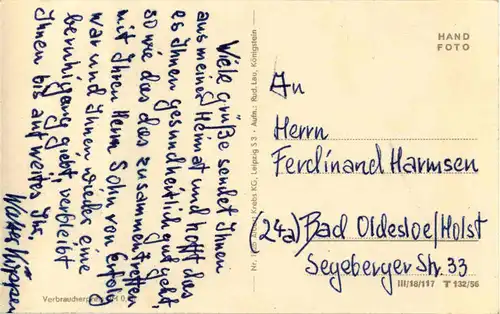 Viele Grüße sendet Ihnen
aus meiner Heimat und hofft das
es Ihnen gesundheitlich gut geht,
so wie das das zusammentreffen
mit Ihren Herrn Sohn von Erfolg
war und Ihnen wieder eine
beruhigung giebt verbleibt
Ihnen bis auf weites Ihr,
Walter
HAND
FOTO
An
Herrn
Ferdinand Harmsen
(24a) Bad Oldesloe/Holst
Segeberger Str. 33
Krebs KG, Leipzig S 3 · Aufn.: Rud. Lau, Königstein
Verbraucherpreis
III/18/117 T 132/56